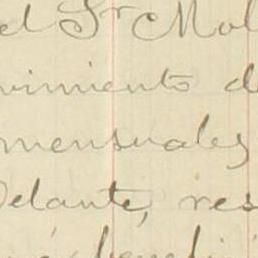 el Sr Mol
vimiento d
mensuales
delante, res
benefi